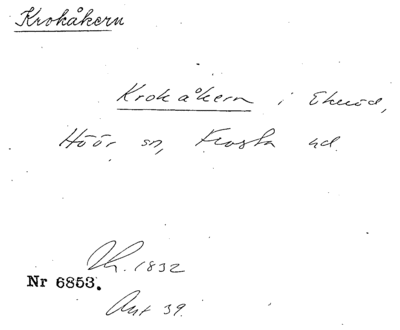 Krokåkern
Krokåkern i Ekeröd,
Höör sn, Frosta hd.
Lh. 1832
Nr 6853.
Akt 39.